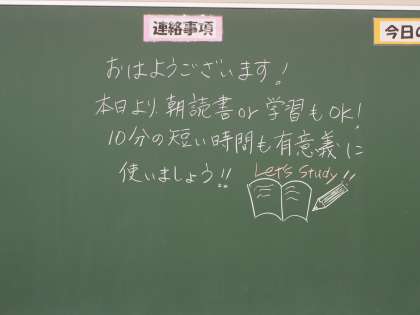 連絡事項
今日の
おはようございます!
本日より朝読書or学習もOK!
10分の短い時間も有意義に
使いましょう!!
Let's Study!!